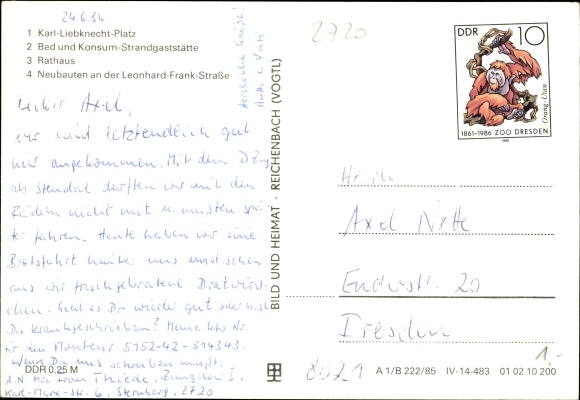 24.6.86
1 Karl-Liebknecht-Platz
2 Bad und Konsum-Strandgaststätte
3 Rathaus
4 Neubauten an der Leonhard-Frank-Straße
Herzliche Grüße!
Mutti u. Vati
Lieber Axel,
wir sind letztendlich gut
hier angekommen. Mit dem D Zug
ab Stendal durften wir mit den
Rädern nicht mit u. mußten spä-
ter fahren. Heute haben wir eine
Bootsfahrt hinter uns und
aus wir frischgebratene Bratwürst-
chen. Geht es Dir wieder gut oder bist
Du krankgeschrieben? Meine Nr.
für den Monteur: 5152-42-514343.
Wenn Du uns schreiben mußt:
bei Frau Thiede, I,
Karl-Marx-Str. 6, Sternberg, 2720
DDR 0,25 M
BILD UND HEIMAT · REICHENBACH (VOGTL)
2720
DDR 10
Orang-Utan
1861–1986 ZOO DRESDEN
1986
Herrn
Axel
20
Dresden
8021
1,-
A 1/B 222/85 IV-14-483 01 02 10 200